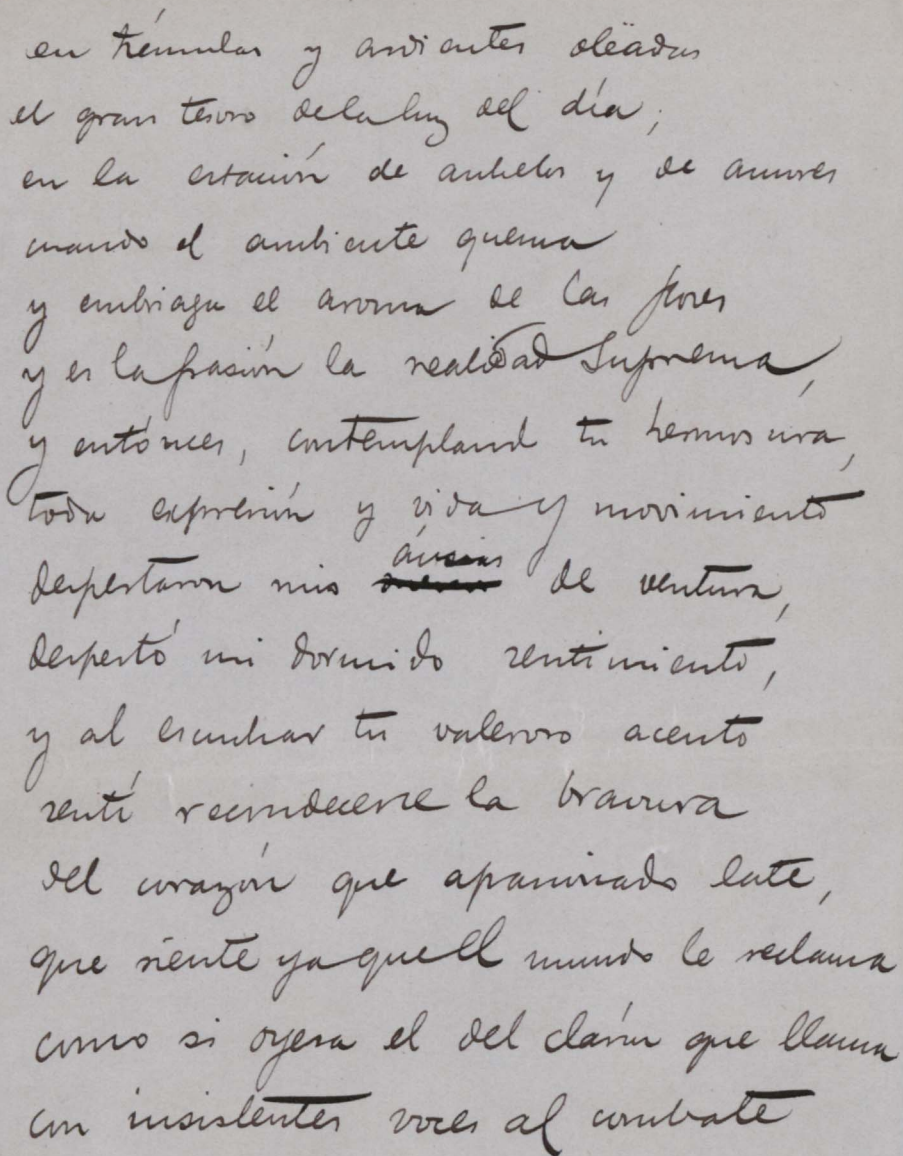 en trémulas y ardientes oleadas
el gran tesoro de la luz del día;
en la estación de anhelos y de amores
cuando el ambiente quema
y embriaga el aroma de las flores
y es la pasión la realidad suprema,
y entónces, contempland tu hermosura,
toda expresión y vida y movimiento
despertaron mis ánsias de ventura,
despertó mi dormido sentimiento,
y al escuchar tu valeroso acento
sentí recrudecerse la bravura
del corazón que apasionado late,
que siente ya que el mundo le reclama
como si oyera el del clarín que llama
con insistentes voces al combate